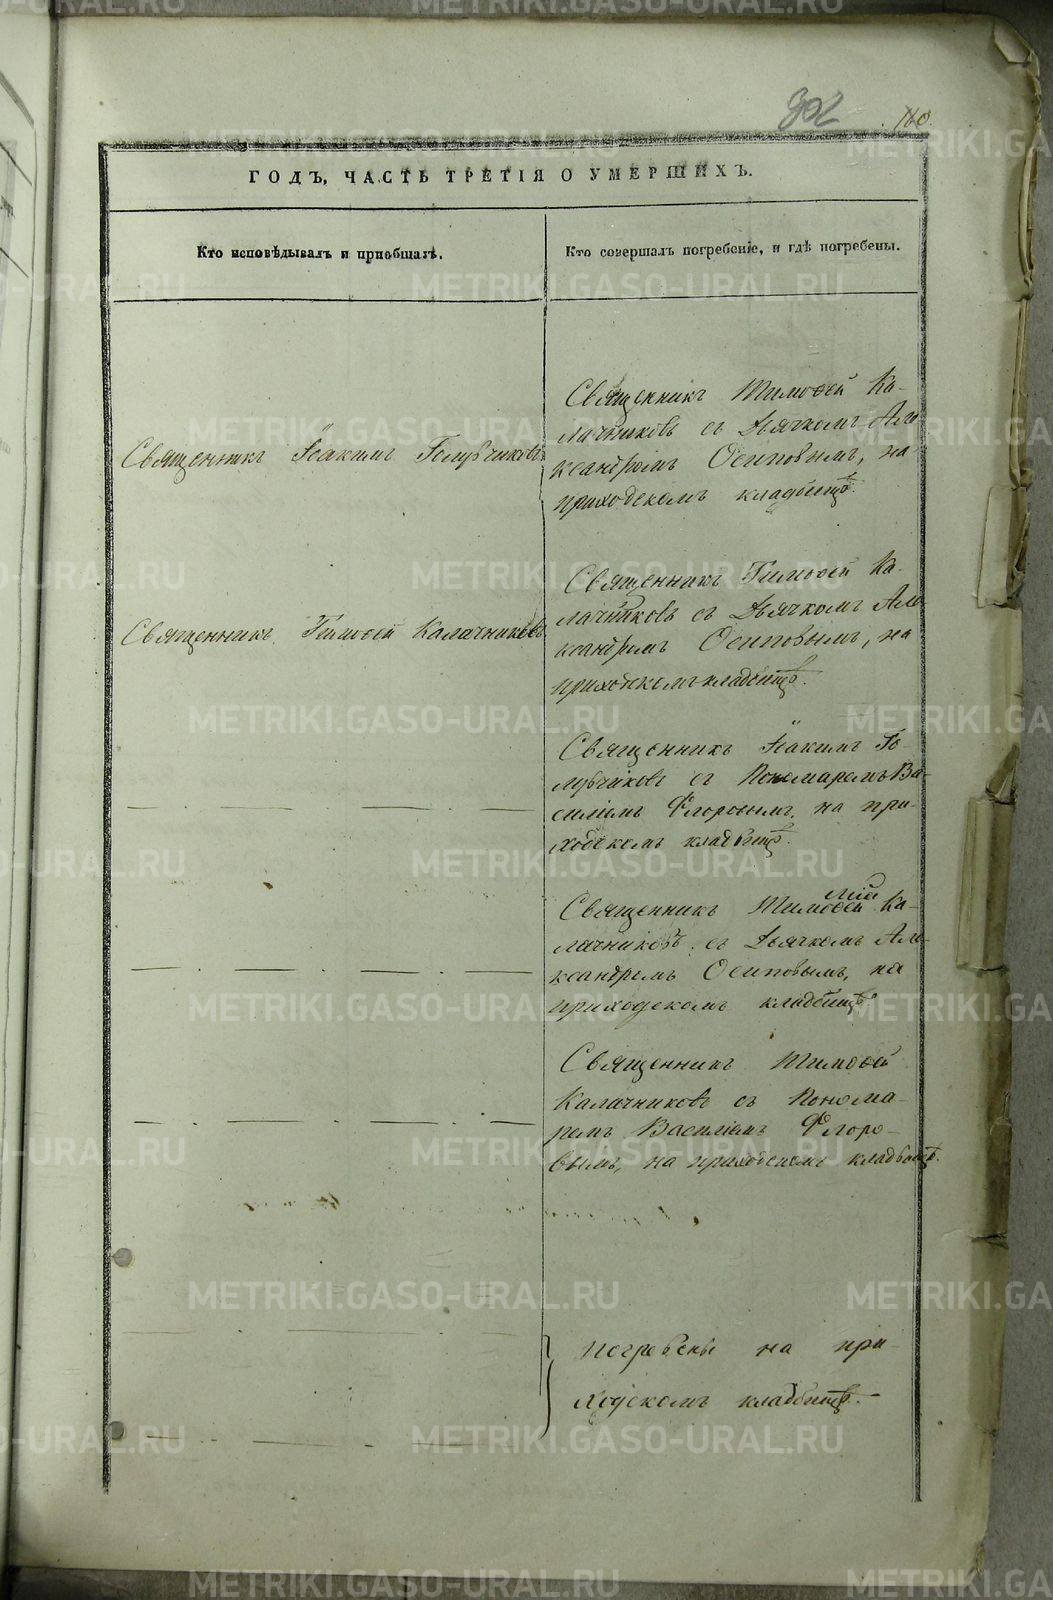 302 110.
ГОДЪ, ЧАСТЬ ТРЕТІЯ О УМЕРШИХЪ.
Кто исповѣдывалъ и пріобщалъ.
Кто совершалъ погребеніе, и гдѣ погребены.
Священникъ Іоакимъ Голубчиковъ
Священникъ Тимофей Ка-
лачниковъ съ Дьячкомъ Але-
ксандромъ Осиповымъ, на
приходскомъ кладбищѣ.
Священникъ Тимофей Калачниковъ
Священникъ Тимофей Ка-
лачниковъ съ Дьячкомъ Але-
ксандромъ Осиповымъ, на
приходскомъ кладбищѣ.
Священникъ Іоакимъ Го-
лубчиковъ съ Пономаремъ Ва-
силіемъ Флоровымъ, на при-
ходскомъ кладбищѣ.
Священникъ Тимофей Ка-
лачниковъ съ Дьячкомъ Але-
ксандромъ Осиповымъ, на
приходскомъ кладбищѣ.
Священникъ Тимофей
Калачниковъ съ Понома-
ремъ Василіемъ Флоро-
вымъ, на приходскомъ кладбищѣ.
Погребены на при-
ходскомъ кладбищѣ.
METRIKI.GASO-URAL.RU